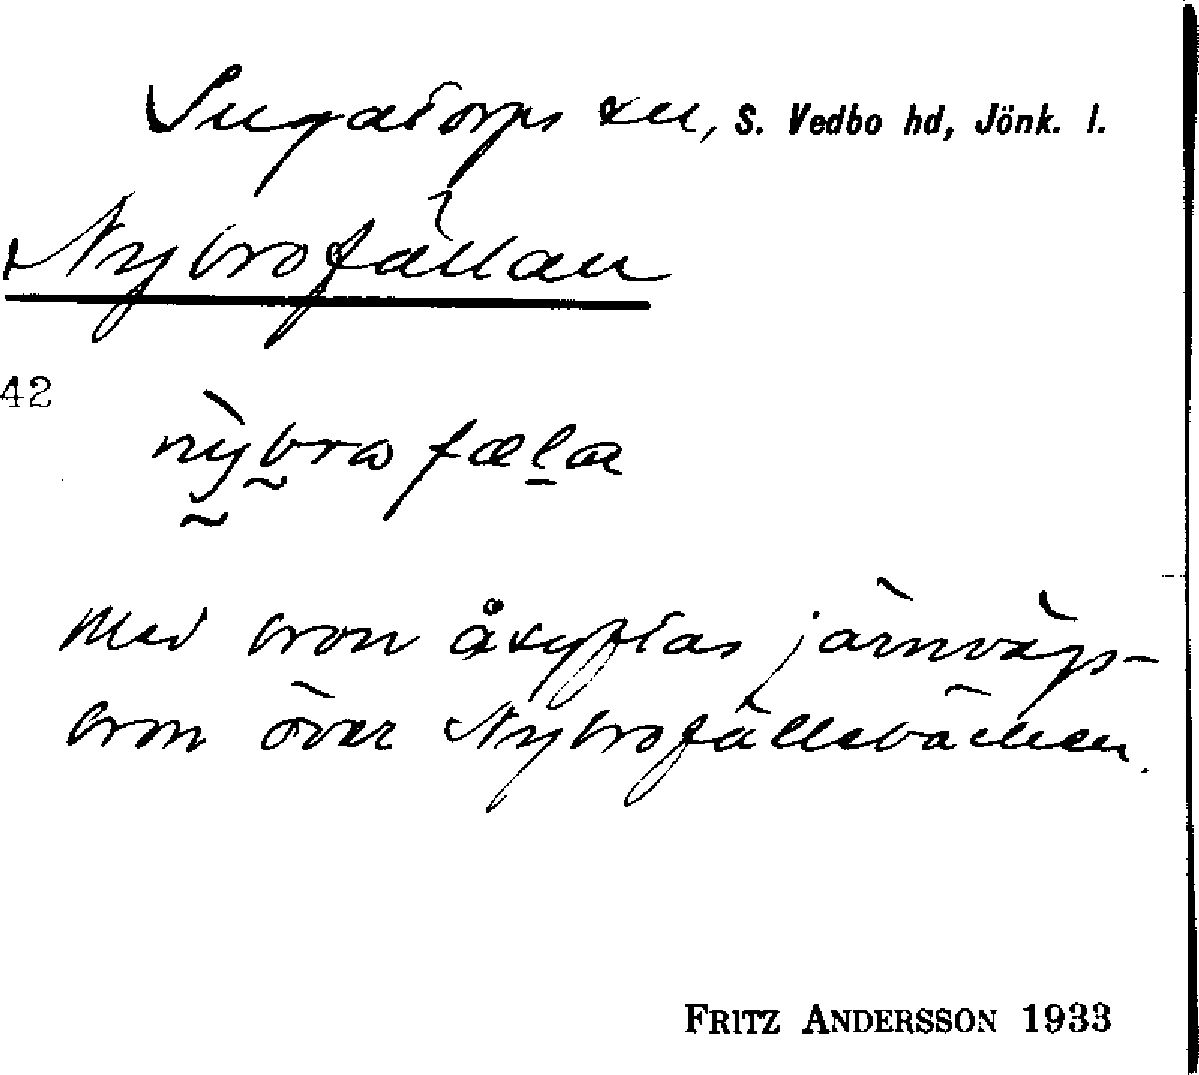 Ingatorps sn, S. Vedbo hd, Jönk. l.
Nybrofällan
42
nỳbrω fæla
Med bron åsyftas järnvägs-
bron över Nybrofällebäcken.
FRITZ ANDERSSON 1933